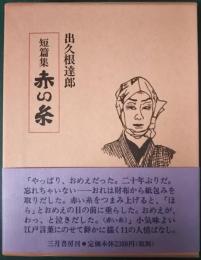 出久根達郎
短篇集
赤い糸
「やっぱり、おめえだった。二十年ぶりだ。
忘れちゃいない――おれは財布から紙包みを
取りだした。赤い糸をつまみ上げると、「ほ
ら」とおめえの目の前に垂らした。おめえが、
わっ、と泣きだした。(「赤い糸」) 小気味よい
江戸言葉にのせて鮮かに描く11の人情ばなし。
三月書房刊・定価本体2300円(税別)